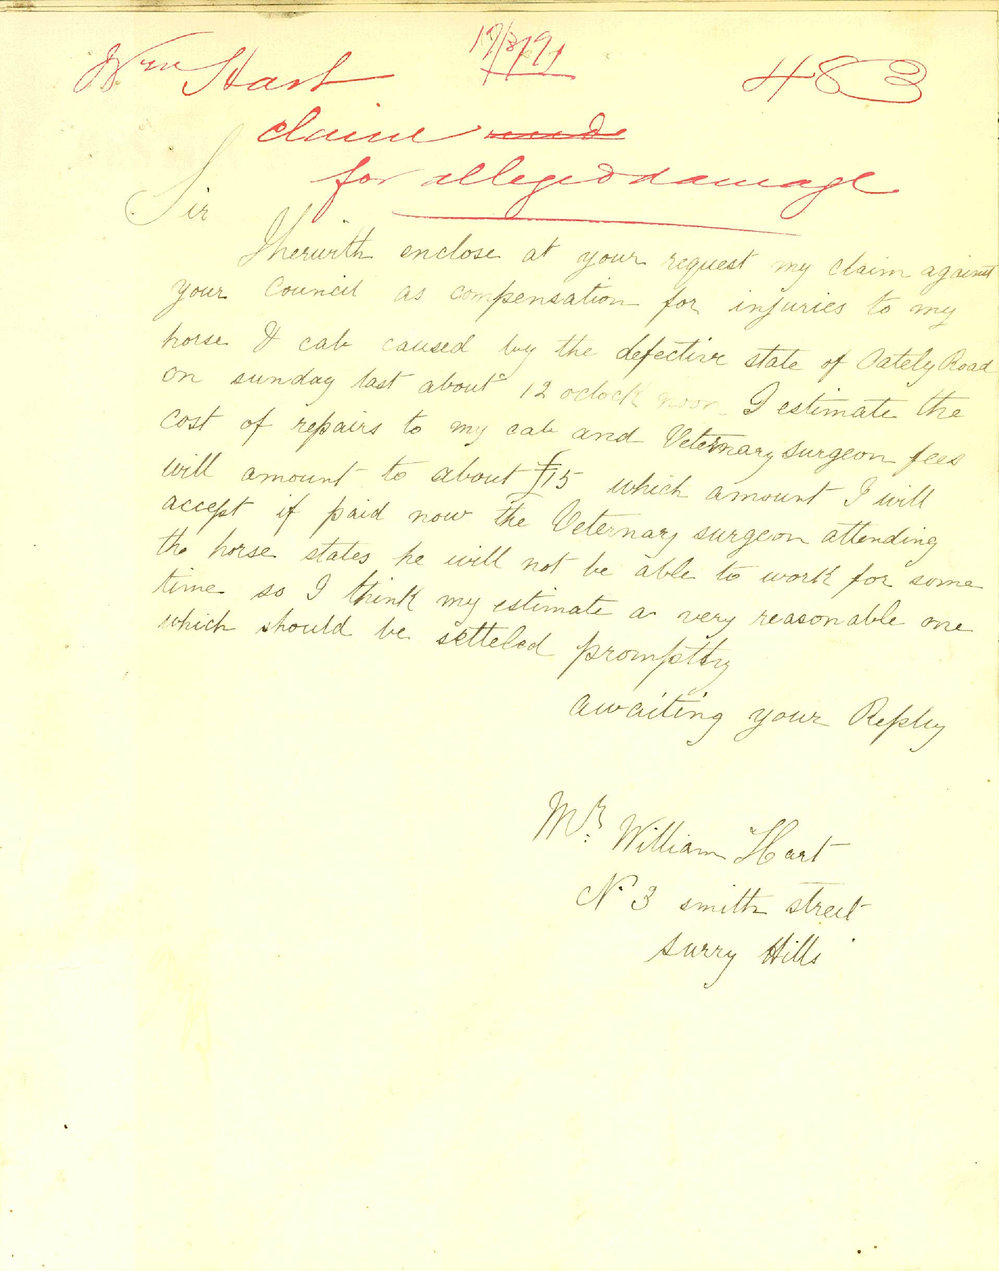 Wm Hart 17/8/91 483
claim made
for alleged damage
Sir
I herwith enclose at your request my claim against
your Council as compensation for injuries to my
horse & cab caused by the defective state of Oately Road
on sunday last about 12 oclock noon I estimate the
cost of repairs to my cab and Veternary surgeon fees
will amount to about £15 which amount I will
accept if paid now the Veternary surgeon attending
the horse states he will not be able to work for some
time so I think my estimate a very reasonable one
which should be setteled promptly
awaiting your Reply
Mr. William Hart
No 3 smith street
Surry Hills